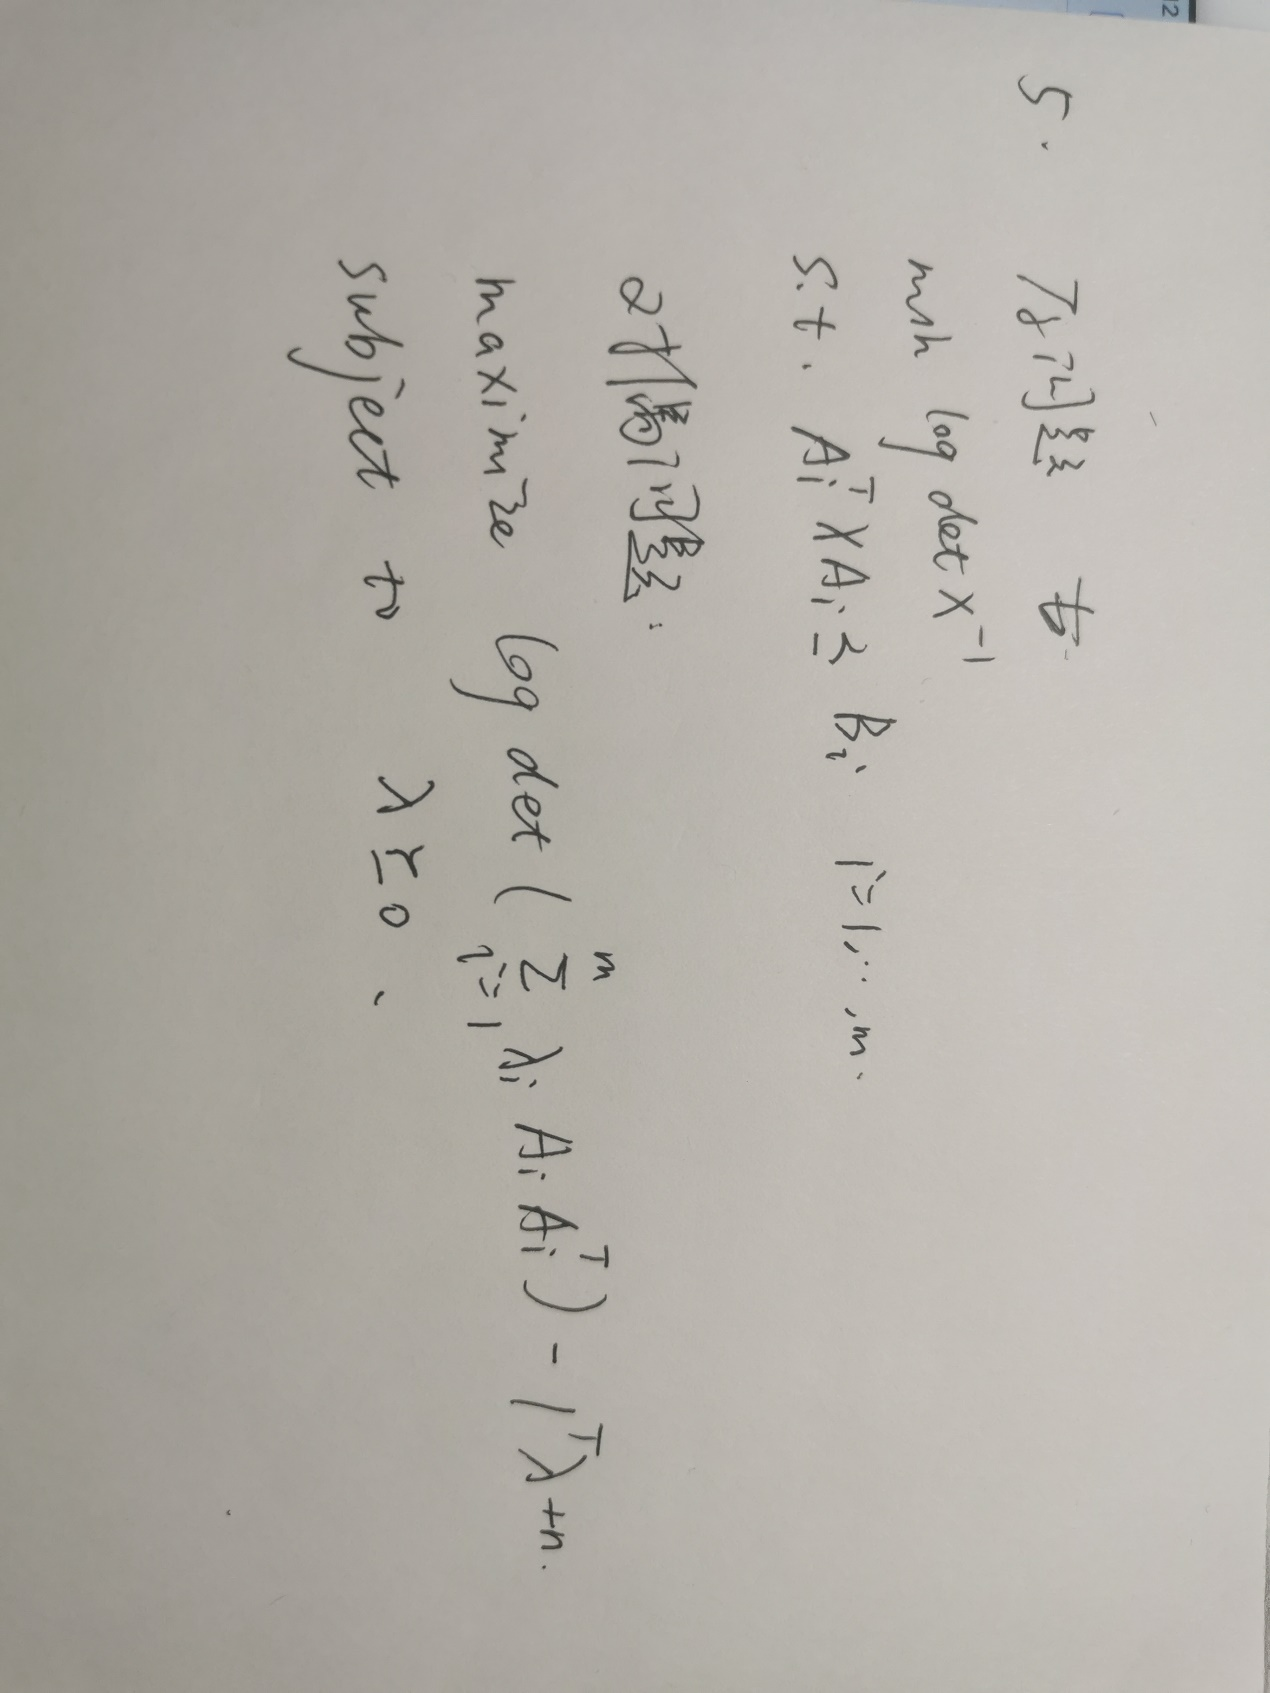 5. 原问题
min log det X⁻¹
s.t. AᵢᵀXAᵢ ⪯ Bᵢ i=1,…,m.
对偶问题:
maximize log det ( ∑ᵢ₌₁ᵐ λᵢ Aᵢ Aᵢᵀ) - 1ᵀλ+n.
subject to λ ⪰ 0.